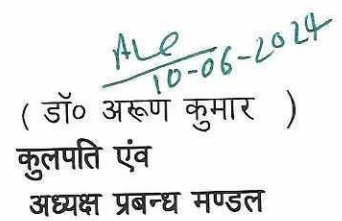 10-06-2024
( डॉ० अरूण कुमार )
कुलपति एंव
अध्यक्ष प्रबन्ध मण्डल